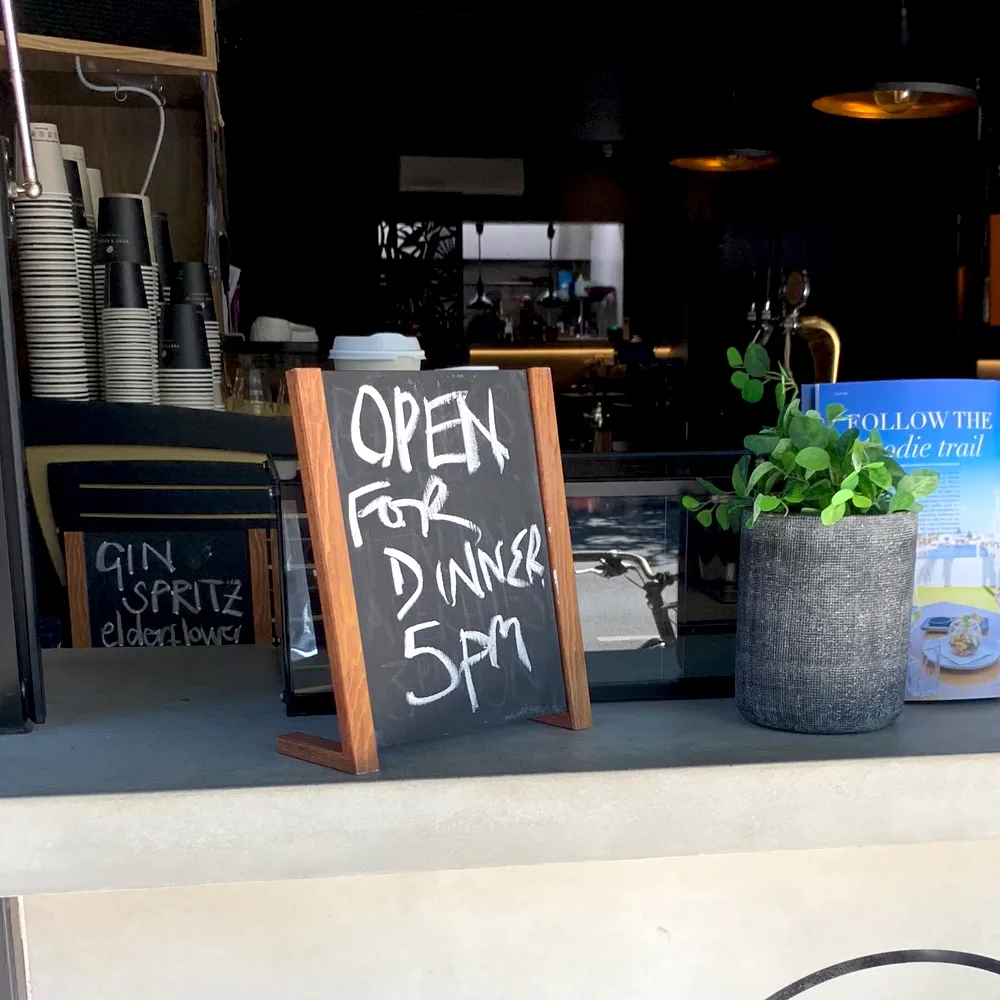 OPEN
FOR
DINNER
5PM
GIN
SPRITZ
elderflower
FOLLOW THE
odie trail